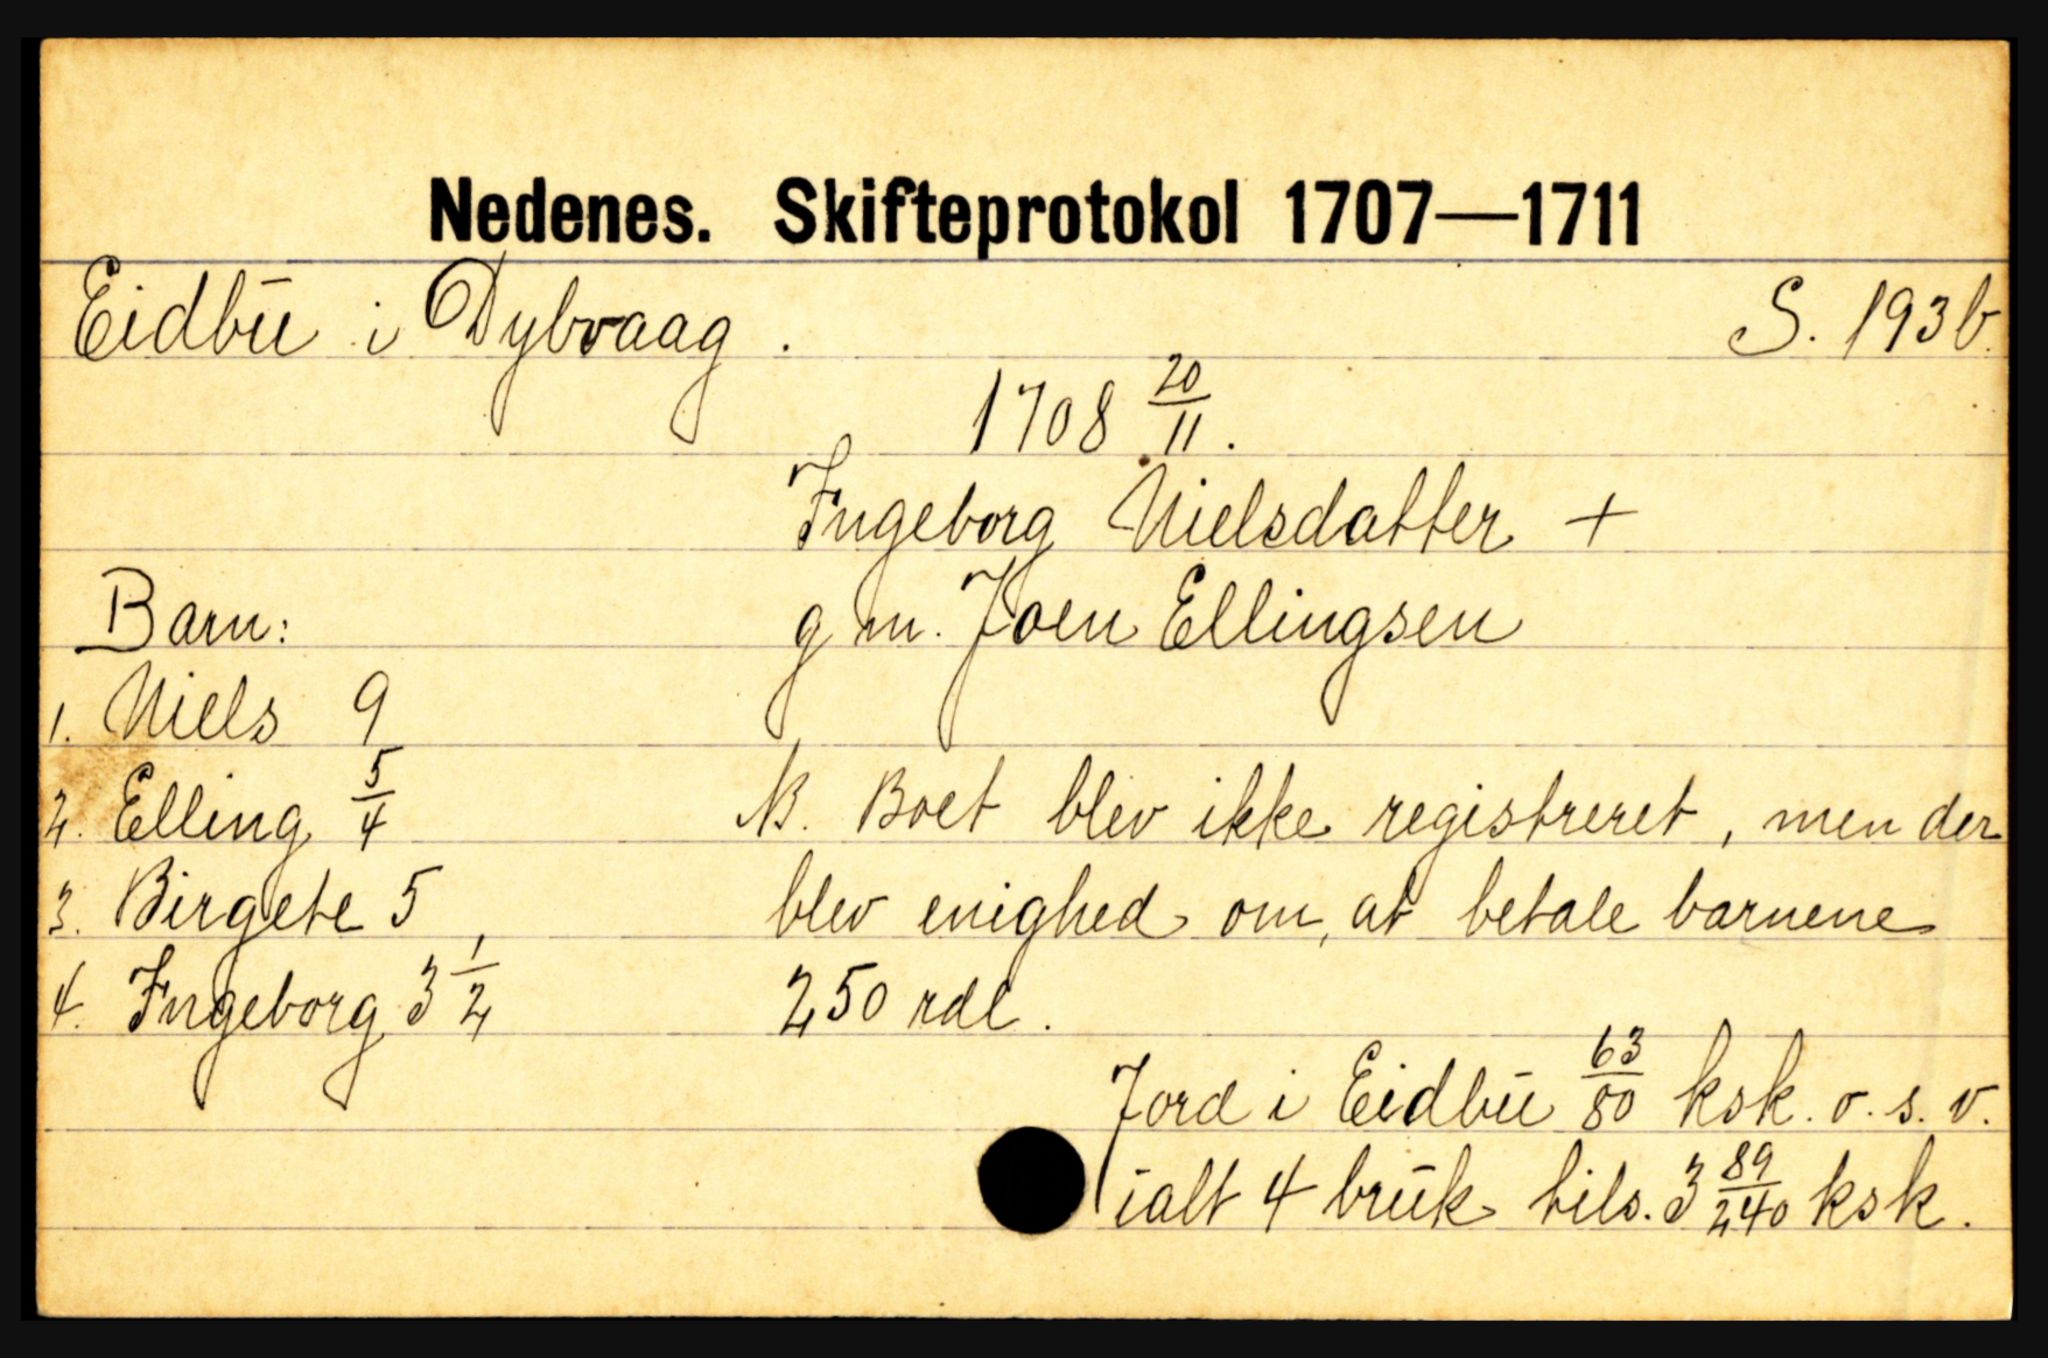 Nedenes. Skifteprotokol 1707—1711
Eidbū i Dybvaag. S. 193b.
1708 20/11.
Ingeborg Nielsdatter +
Barn: g m. Joen Ellingsen
1. Niels 9
2. Elling 5/4 NB. Boet blev ikke registreret, men der
3. Birgete 5 blev enighed om, at betale barnene
4. Ingeborg 3 1/2 250 rdl.
Jord i Eidbū 63/80 ksk. o. s. v.
ialt 4 brūk tils. 3 89/240 ksk.